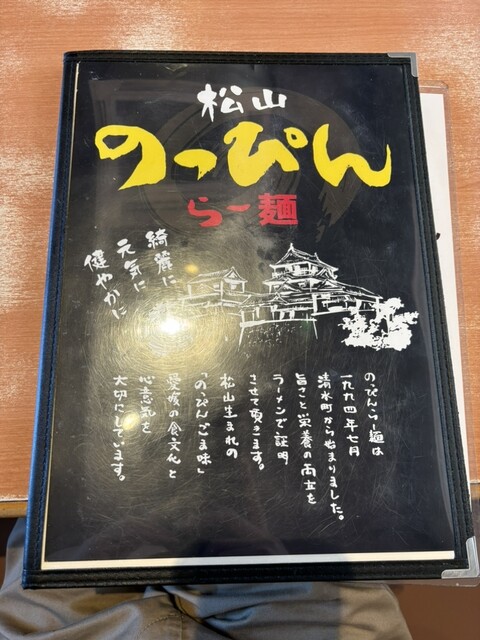 松山
のっぴん
らー麺
綺麗に
元気に
健やかに
のっぴんらー麺は
一九九四年七月
清水町から始まりました。
旨さと栄養の両立を
ラーメンで証明
させて頂きます。
松山生まれの
「のっぴんごま味」
愛媛の食文化と
心意気を
大切にしています。